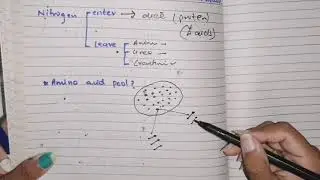 Nitrogen enter → diet (protein
& acids)
Leave Amino
Urea
Creatinin
* Amino acid pool?